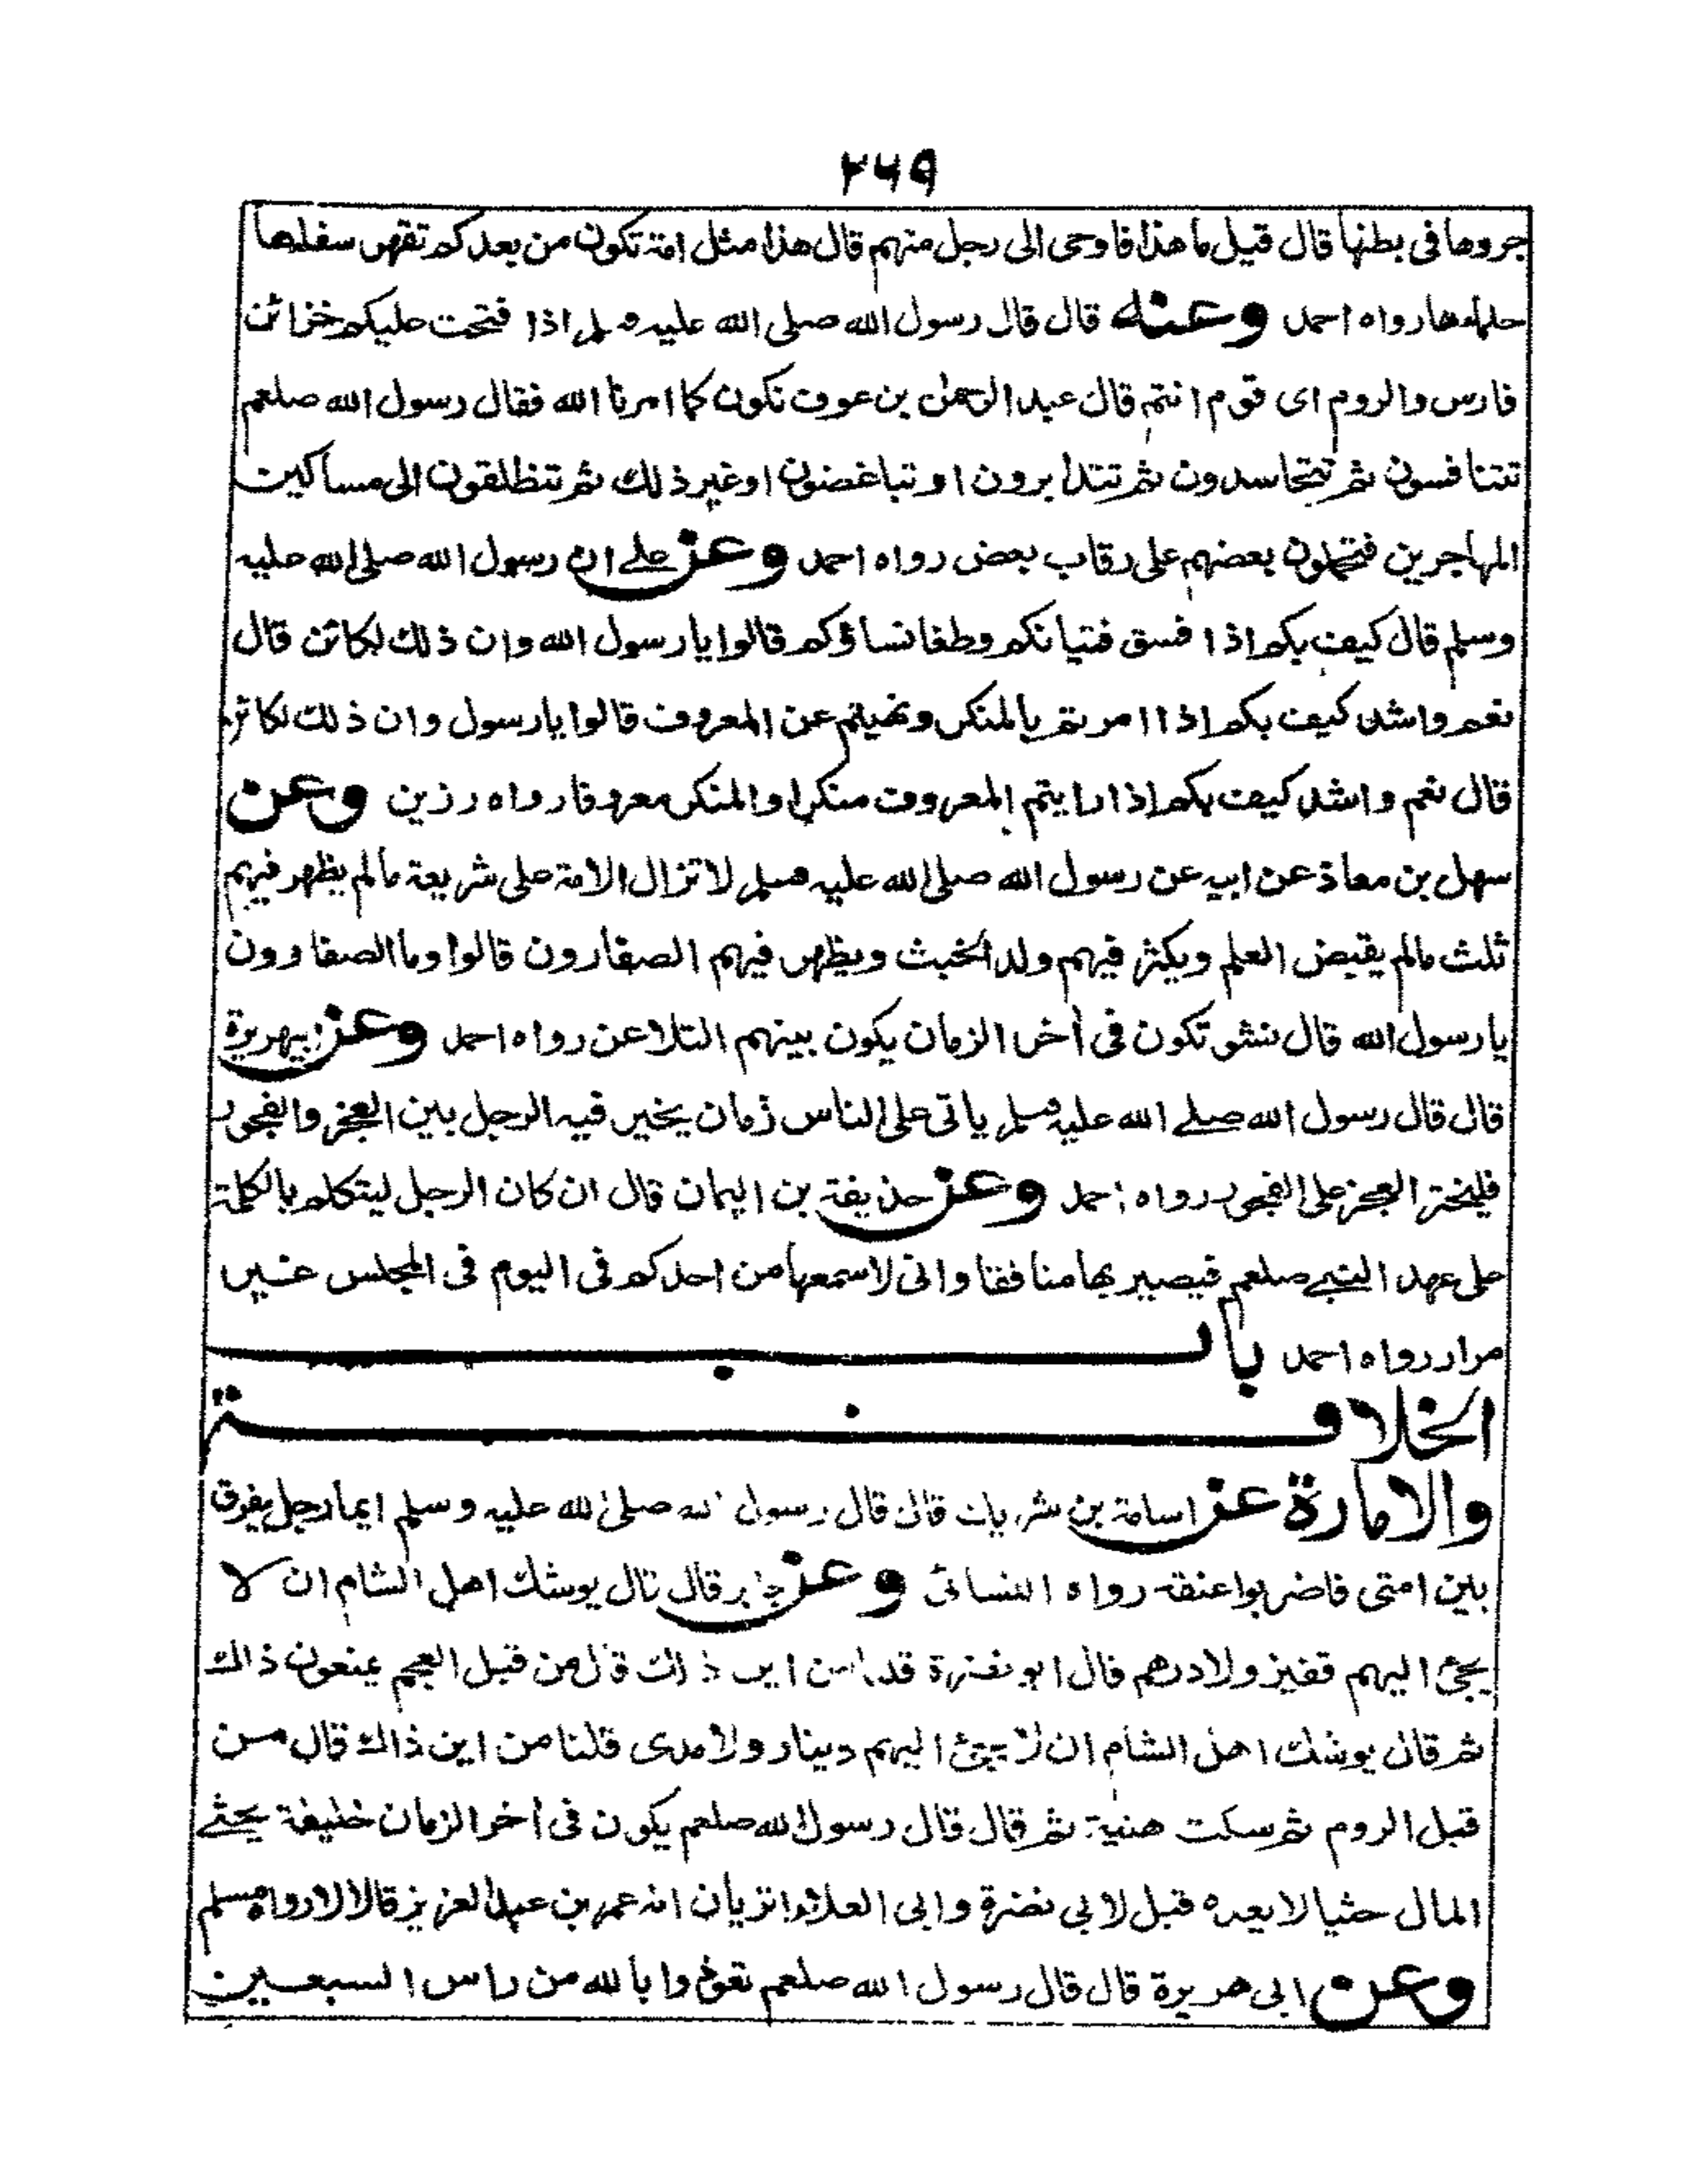 ۲۶۹
جروها فى بطنها قال قيل ما هذا فاوحى الى رجل منهم قال هذا مثل امة تكون من بعدكم تقهر سفلها
رواه احمد وعنه قال قال رسول الله صلى الله عليه وسلم اذا فتحت عليكم خزائن
فارس والروم اى قوم انتم قال عبد الرحمن بن عوف نكون كما امرنا الله فقال رسول الله صلعم
تتنافسون ثم تتحاسدون ثم تتدابرون او تتباغضون او غير ذلك ثم تنطلقون الى مساكين
المهاجرين فتحملون بعضهم على رقاب بعض رواه احمد وعن على ان رسول الله صلى الله عليه
وسلم قال كيف بكم اذا فسق فتيانكم وطغا نساؤكم قالوا يا رسول الله وان ذلك لكائن قال
نعم واشد كيف بكم اذا امرتم بالمنكر ونهيتم عن المعروف قالوا يا رسول وان ذلك لكائن
قال نعم واشد كيف بكم اذا رايتم المعروف منكرا والمنكر معروفا رواه رزين وعن
سهل بن معاذ عن ابيه عن رسول الله صلى الله عليه وسلم لا تزال الامة على شريعة مالم يظهر فيهم
ثلث مالم يقبض العلم ويكثر فيهم ولد الخبث ويظهر فيهم الصقارون قالوا وما الصقارون
يا رسول الله قال نشو تكون فى أخر الزمان يكون بينهم التلاعن رواه احمد وعن ابيهريرة
قال قال رسول الله صلے الله عليه وسلم ياتى على الناس زمان يخير فيه الرجل بين العجز والفجور
فليختر العجز على الفجور رواه احمد وعن حذيفة بن اليمان قال ان كان الرجل ليتكلم بالكلمة
على عهد النبے صلعم فيصير بها منافقا وانى لاسمعها من احدكم فى اليوم فى المجلس عشر
مرار رواه احمد باب
الخلافة
والامارة عن اسامة بن شريك قال قال رسول الله صلى الله عليه وسلم ايما رجل يفرق
بين امتى فاضربوا عنقه رواه النسائى وعن جابر قال قال يوشك اهل الشام ان لا
يجئ اليهم قفيز ولا درهم قال ابو نضرة قلنا من اين ذلك قال من قبل العجم يمنعون ذاك
ثم قال يوشك اهل الشام ان لا يجئ اليهم دينار ولا مدى قلنا من اين ذاك قال من
قبل الروم ثم سكت هنية ثم قال قال رسول الله صلعم يكون فى أخر الزمان خليفة يحثے
المال حثيا لا يعده قيل لابي نضرة وابى العلاء اتريان انه عمر بن عبد العزيز قالا لا رواه مسلم
وعن ابى هريرة قال قال رسول الله صلعم تعوذوا بالله من راس السبعين